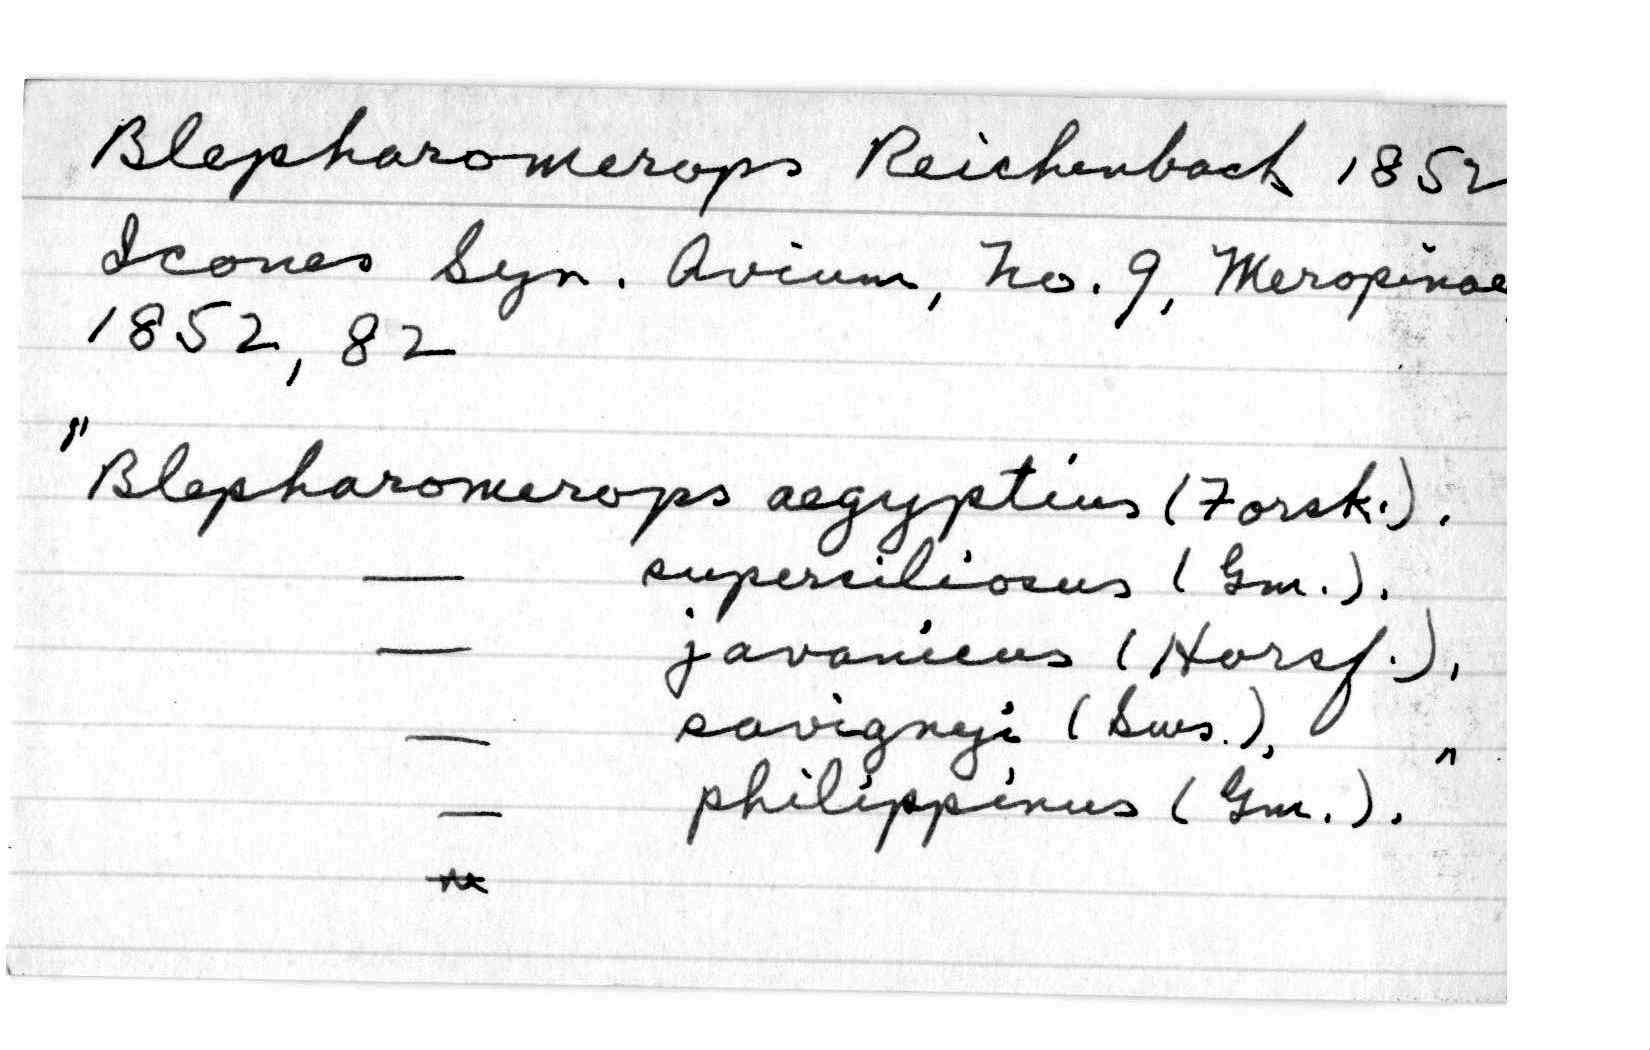 Blepharomerops Reichenbach 1852
Icones Syn. Avium, No. 9, Meropinae
1852, 82
"Blepharomerops aegyptius (Forsk.).
— superciliosus (Gm.).
— javanicus (Horsf.),
— savignyi (Sws.),
— philippinus (Gm.)."